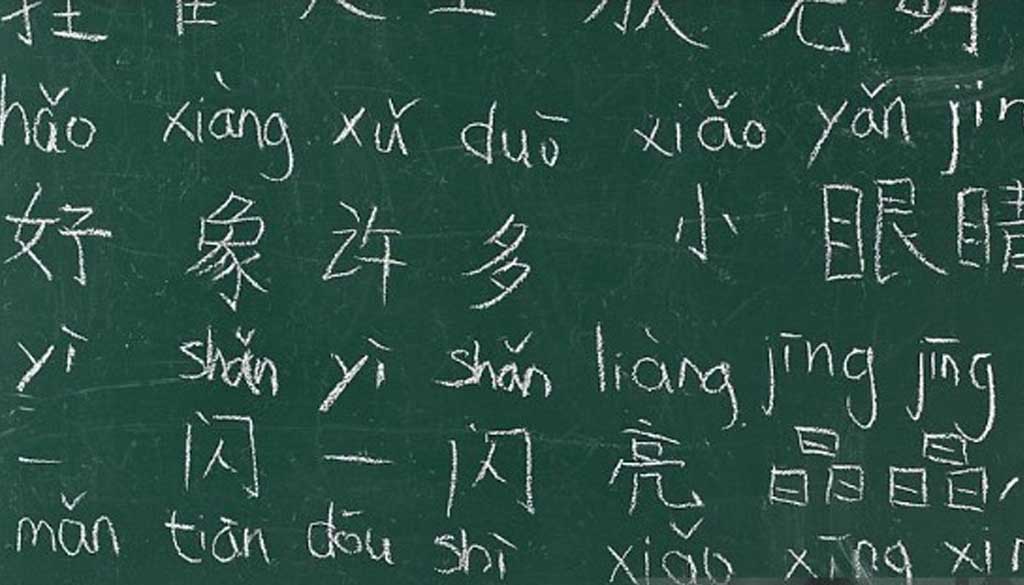 挂在天上放光明
hǎo xiàng xǔ duō xiǎo yǎn jin
好象许多小眼睛
yì shǎn yì shǎn liàng jīng jīng
一闪一闪亮晶晶,
mǎn tiān dōu shì xiǎo xīng xin